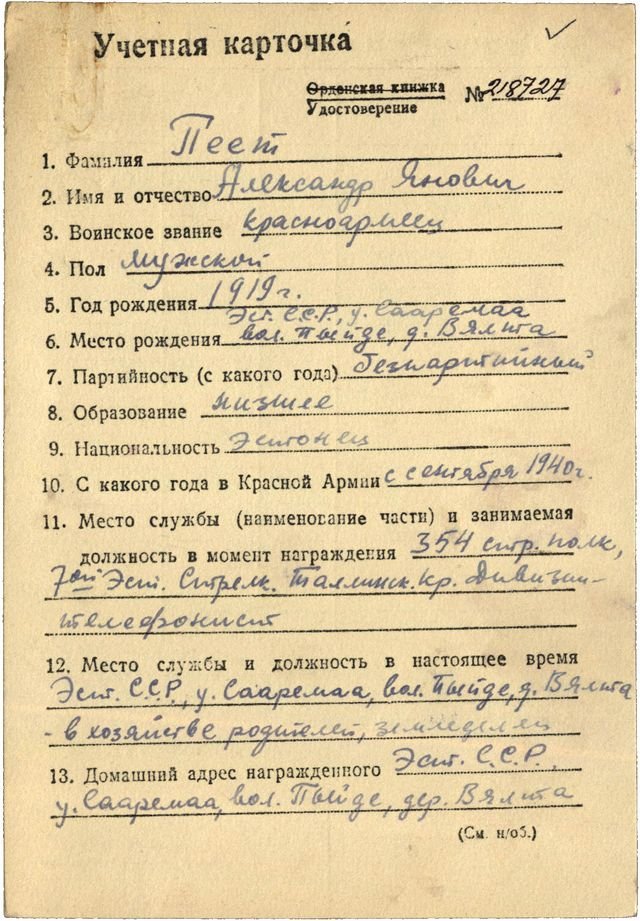 Учетная карточка
Орденская книжка
Удостоверение №218727
1. Фамилия Пеет
2. Имя и отчество Александр Янович
3. Воинское звание красноармеец
4. Пол мужской
5. Год рождения 1919 г.
Эст. С.С.Р., у. Сааремаа
6. Место рождения вол. Пыйде, д. Вялта
7. Партийность (с какого года) безпартийный
8. Образование низшее
9. Национальность эстонец
10. С какого года в Красной Армии с сентября 1940 г.
11. Место службы (наименование части) и занимаемая
должность в момент награждения 354 стр. полк,
7ой Эст. Стрелк. Таллинск. Кр. Дивизии-
телефонист
12. Место службы и должность в настоящее время
Эст. С.С.Р., у. Сааремаа, вол. Пыйде, д. Вялта
- в хозяйстве родителей, земледелец
13. Домашний адрес награжденного Эст. С.С.Р.,
у. Сааремаа, вол. Пыйде, дер. Вялта
(См. н/об.)